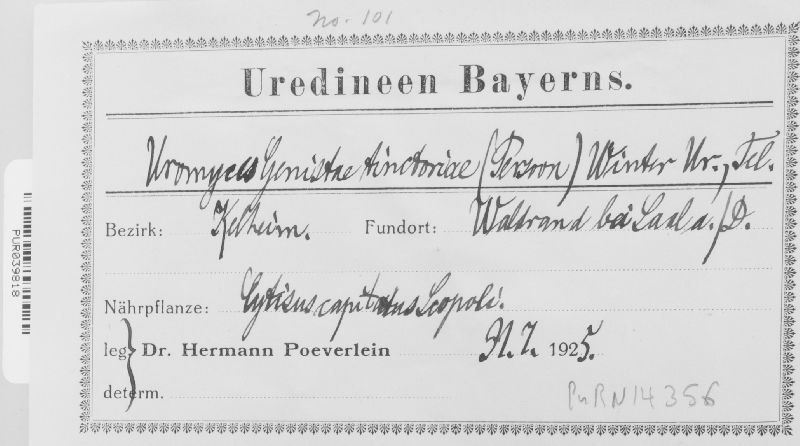 No. 101
Uredineen Bayerns.
Uromyces Genistae tinctoriae (Persoon) Winter Ur., Tel.
Bezirk: Kelheim. Fundort: Waldrand bei Saal a./D.
Nährpflanze: Cytisus capitatus Scopoli.
leg. Dr. Hermann Poeverlein 31.7. 1925.
determ.
PuRN14356
PUR039818